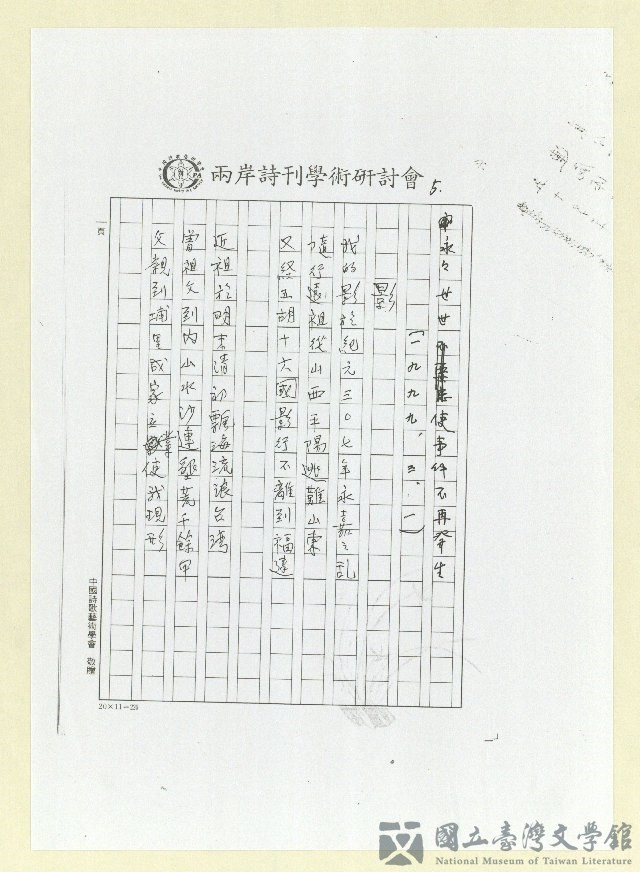 兩岸詩刊學術研討會
5.
永々世世使事件不再發生
(一九九九.三.一)
影
我的影於紀元三〇七年永嘉之亂
隨行遠祖從山西平陽逃難山東
又經五胡十六國影行不離到福建
近祖於明末清初飄海流浪台灣
曾祖父到內山水沙連墾荒千餘甲
父親到埔里成家立業使我現形
一頁
中國詩歌藝術學會 敬贈
20×11=22
國立臺灣文學館
National Museum of Taiwan Literature